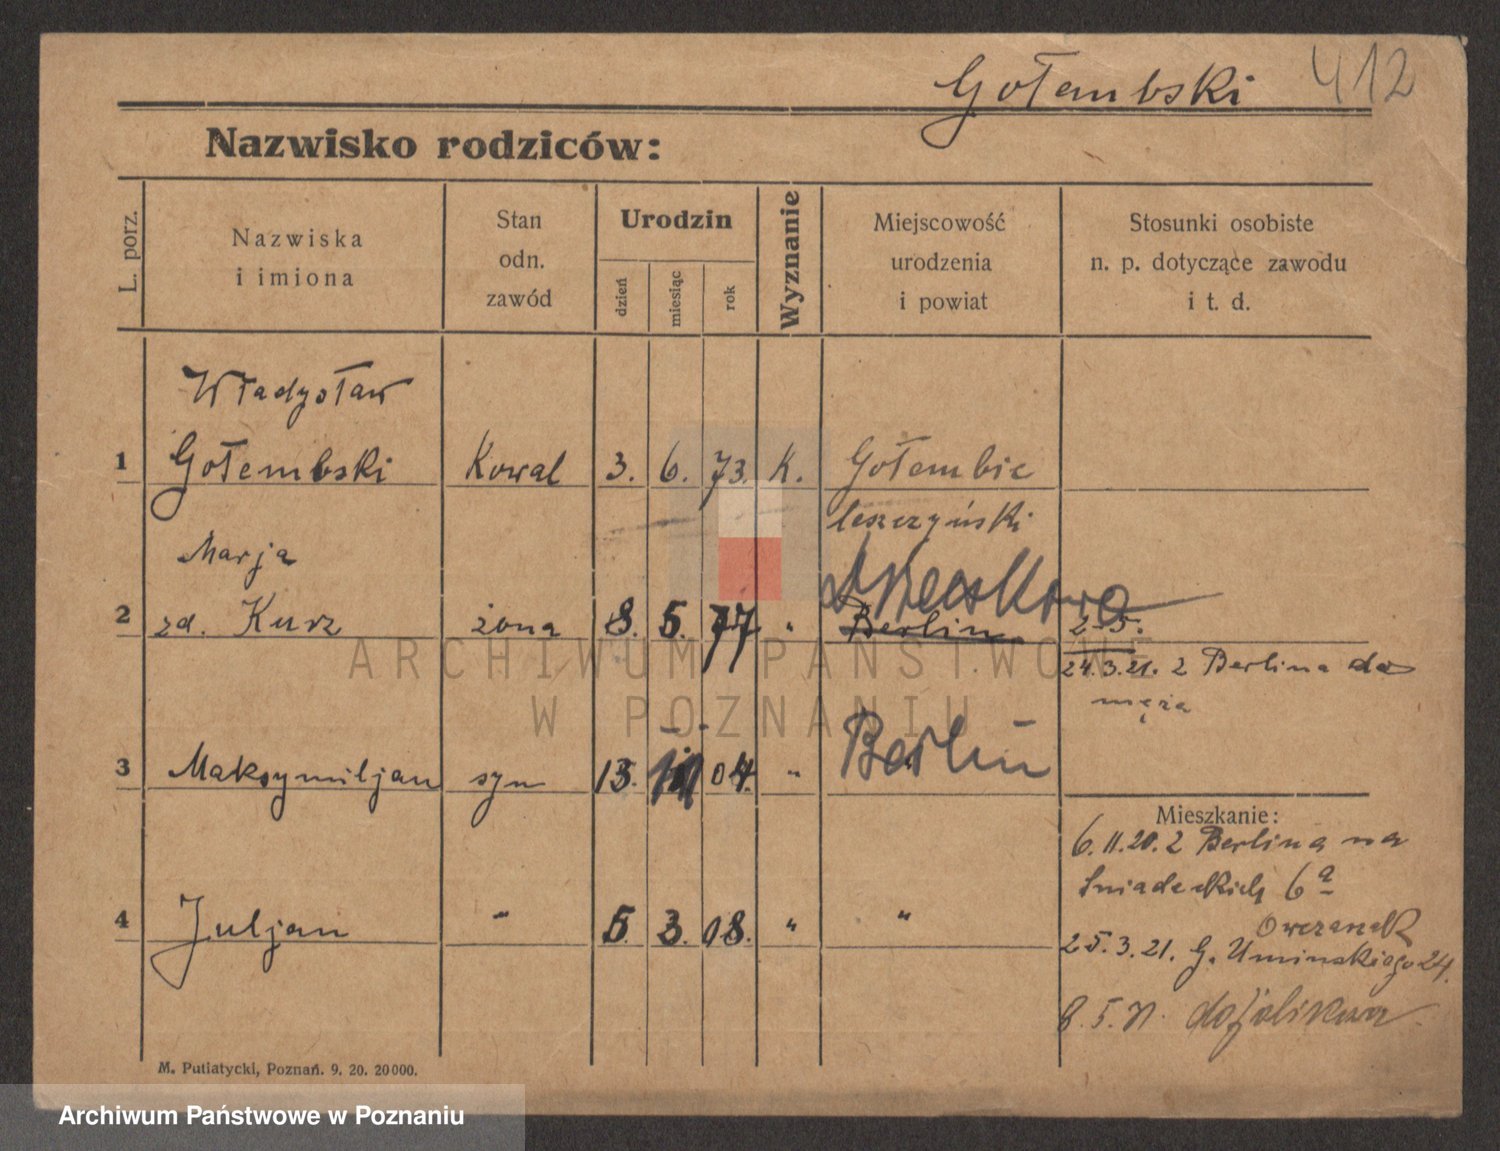 Gołembski 412
Nazwisko rodziców:
L. porz.
Nazwiska
i imiona
Stan
odn.
zawód
Urodzin
dzień
miesiąc
rok
Wyznanie
Miejscowość
urodzenia
i powiat
Stosunki osobiste
n. p. dotyczące zawodu
i t. d.
Władysław
1 Gołembski Kowal 3. 6. 73. K. Gołembie
leszczyński
Marja
2 zd. Kurz żona 8. 5. 77 " Berlin 2-5.
24.3.21. z Berlina do
męża
3 Maksymiljan syn 13. 04. " Berlin
Mieszkanie:
6.11.20. z Berlina na
Śniadeckich 6a
Owczarzak
4 Juljan " 5. 3. 08. " "
25.3.21. G. Umińskiego 24.
8.5.
M. Putiatycki, Poznań. 9. 20. 20000.
ARCHIWUM PAŃSTWOWE
W POZNANIU
Archiwum Państwowe w Poznaniu